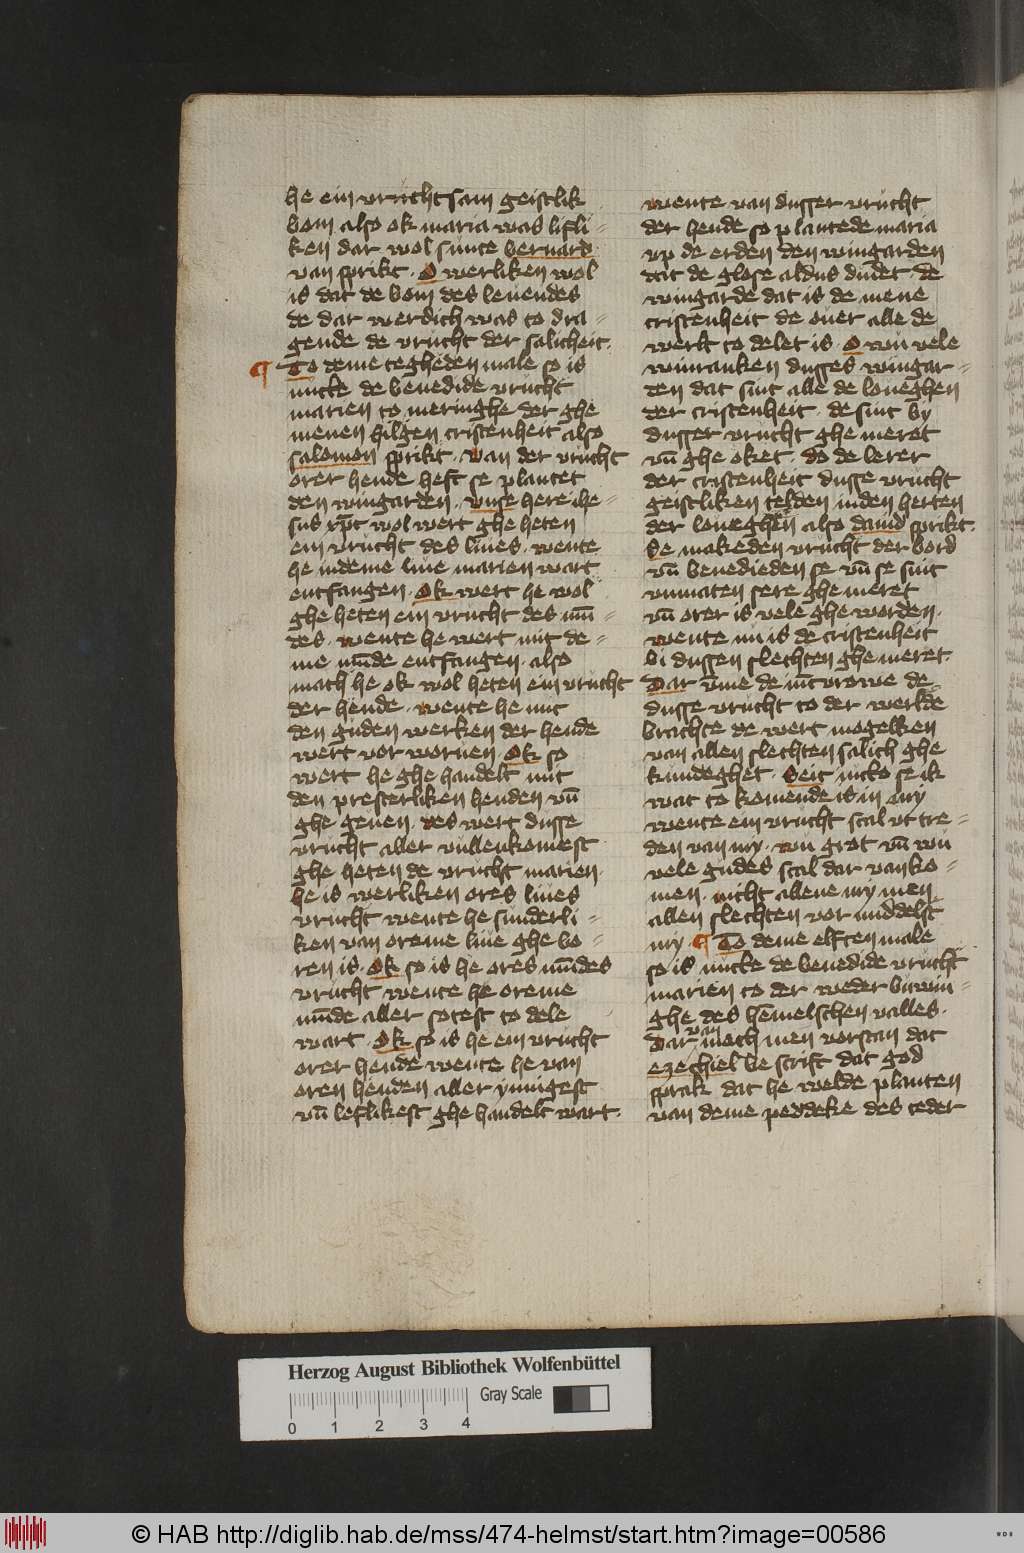 he ein vrucht sam geistlik
bom also ok maria was lifli-
ken dar wol sunte bernard
van sprikt. O werliken wol
is dat de bom des leuendes
de dar werdich was to dra-
gende de vrucht der salicheit.
¶ To deme tegheden male so is
nutte de benedide vrucht
marien to meringhe der ghe
menen hilgen cristenheit also
salomon sprikt. Van der vrucht
orer hende heft se plantet
den wingarden. vnse here ihe-
sus xp̄c wol wert ghe heten
ein vrucht des liues. wente
he in deme liue marien wart
entfangen. Ok wert he wol
ghe heten ein vrucht des mū-
des. wente he wert mit de-
me mūde entfangen. also
mach he ok wol heten ein vrucht
der hende. wente he mit
den guden werken der hende
wert vor woruen. Ok so
wert he ghe handelt mit
den presterliken henden vn̄
ghe geuen. des wert dusse
vrucht aller vullenkomest
ghe heten de vrucht marien.
he is werliken ores liues
vrucht wente he sunderli-
ken van oreme liue ghe bo-
ren is. Ok so is he ores mūdes
vrucht wente he oreme
mūde aller sotest to dele
wart. Ok so is he ein vrucht
orer hende wente he van
oren henden aller ynnigest
vn̄ leflikest ghe handelt wart.
wente van dusser vrucht
der hende so plantede maria
vp de erden den wingarden
dat de glose aldus dudet. de
wingarde dat is de mene
cristenheit de ouer alle de
werlt to delet is. O wu vele
winranken dusses wingar-
den dat sint alle de loueghen
der cristenheit. de sint by
dusser vrucht ghe meret
vn̄ ghe oket. do de lerer
der cristenheit dusse vrucht
geistliken telden in den herten
der loueghen also dauid sprikt.
Se makeden vrucht der bord
vn̄ benedieden se vn̄ se sint
vnmaten sere ghe meret
vn̄ orer is vele ghe worden.
wente nu is de cristenheit
bi dussen slechten ghe meret.
Dar v̄me de iūcvrowe de
dusse vrucht to der werlde
brachte de wert mogelken
van allen slechten salich ghe
kundeghet. Seit nicko se ik
wat to komende is in my
wente ein vrucht scal vt tre-
den van my. wu grot vn̄ wu
vele gudes scal dar van ko-
men. nicht allene my men
allen slechten vor middelst
my. ¶ To deme elften male
so is nutte de benedide vrucht
marien to der weder buwin-
ghe des hemelschen valles.
Dar van mach men vorstan dat
ezechiel be scrift dat god
sprak dat he wolde planten
van deme peddeke des ceder
Herzog August Bibliothek Wolfenbüttel
Gray Scale
0 1 2 3 4
© HAB http://diglib.hab.de/mss/474-helmst/start.htm?image=00586